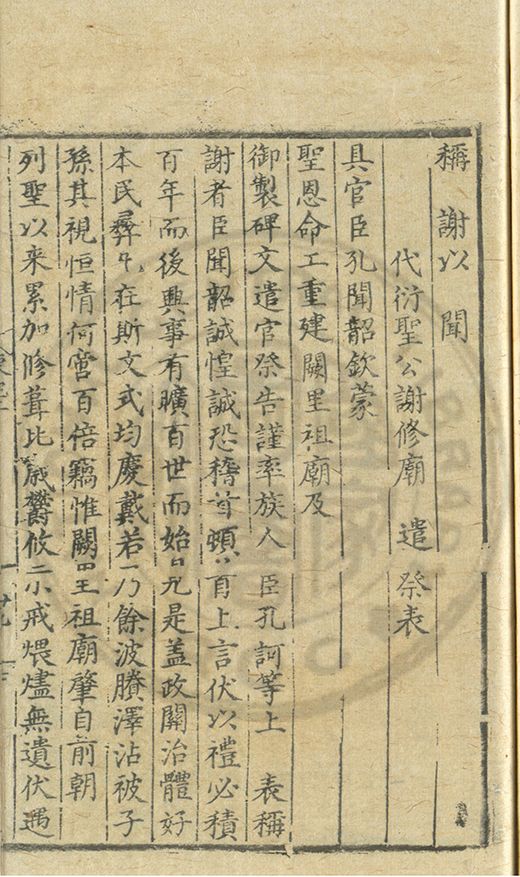 稱 謝以 聞
代衍聖公謝修廟 遣 祭表
具官臣孔聞韶欽蒙
聖恩命工重建闕里祖廟及
御製碑文遣官祭告謹率族人臣孔訶等上 表稱
謝者臣聞韶誠惶誠恐稽首頓首上言伏以禮必積
百年而後興事有曠百世而始見是蓋政關治體好
本民彝凡在斯文式均慶戴若乃餘波賸澤沾被子
孫其視恒情何啻百倍竊惟闕里祖廟肇自前朝
列聖以来累加修葺比歲欝攸示戒煨燼無遺伏遇